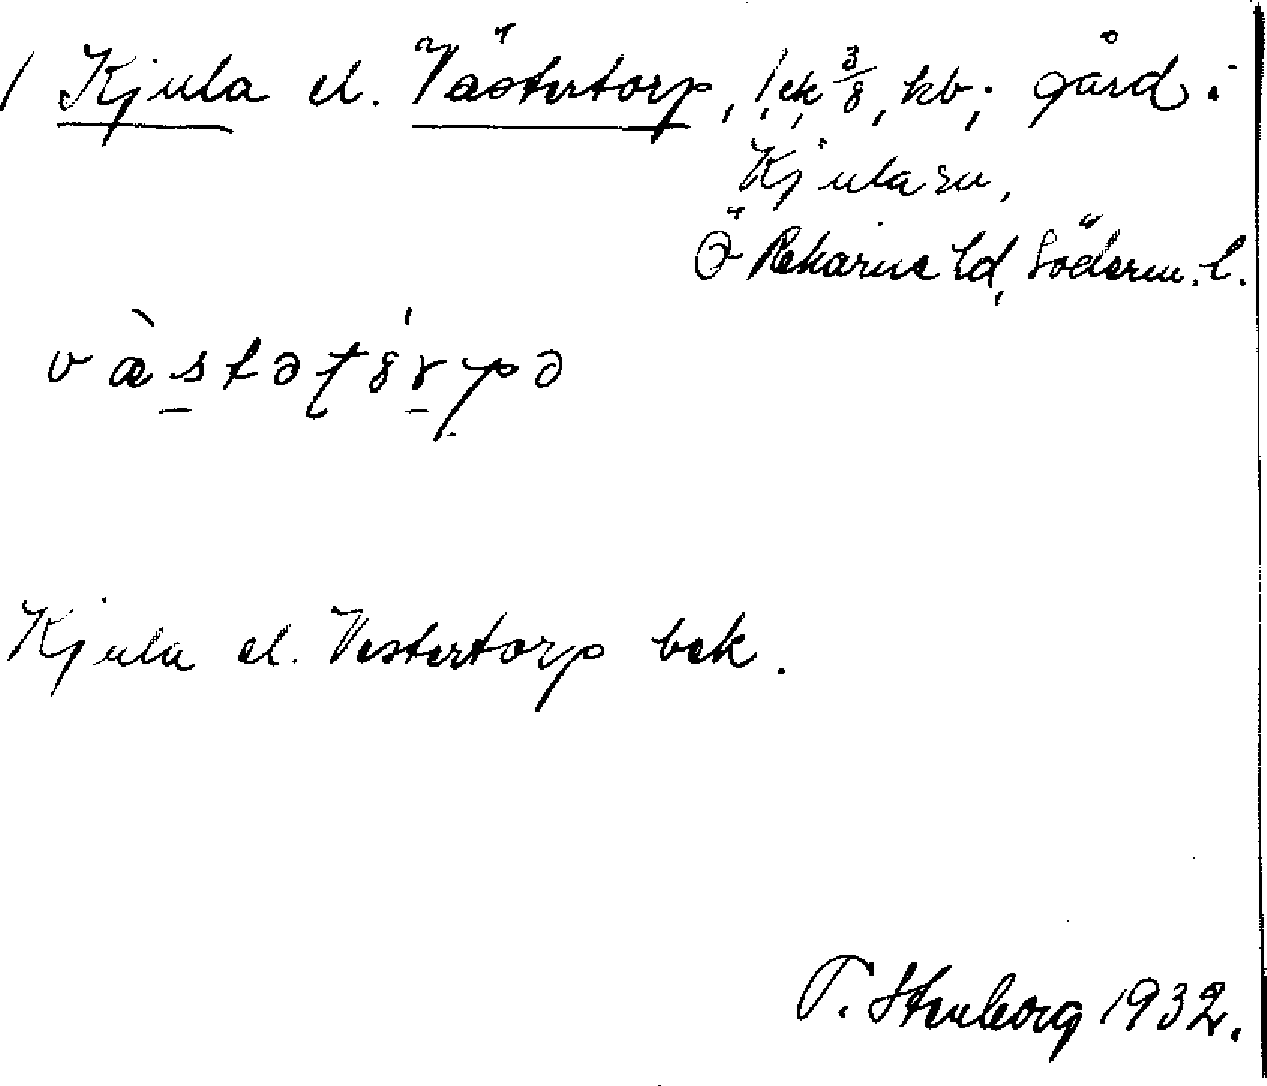 / Kjula el. Västertorp, 1 ek 3/8, kb; gård i
Kjula sn,
Ö Rekarne hd, Söderm. l.
væ̀stəʈɞ́rpə
Kjula el. Vestertorp bek.
T. Stenborg 1932.